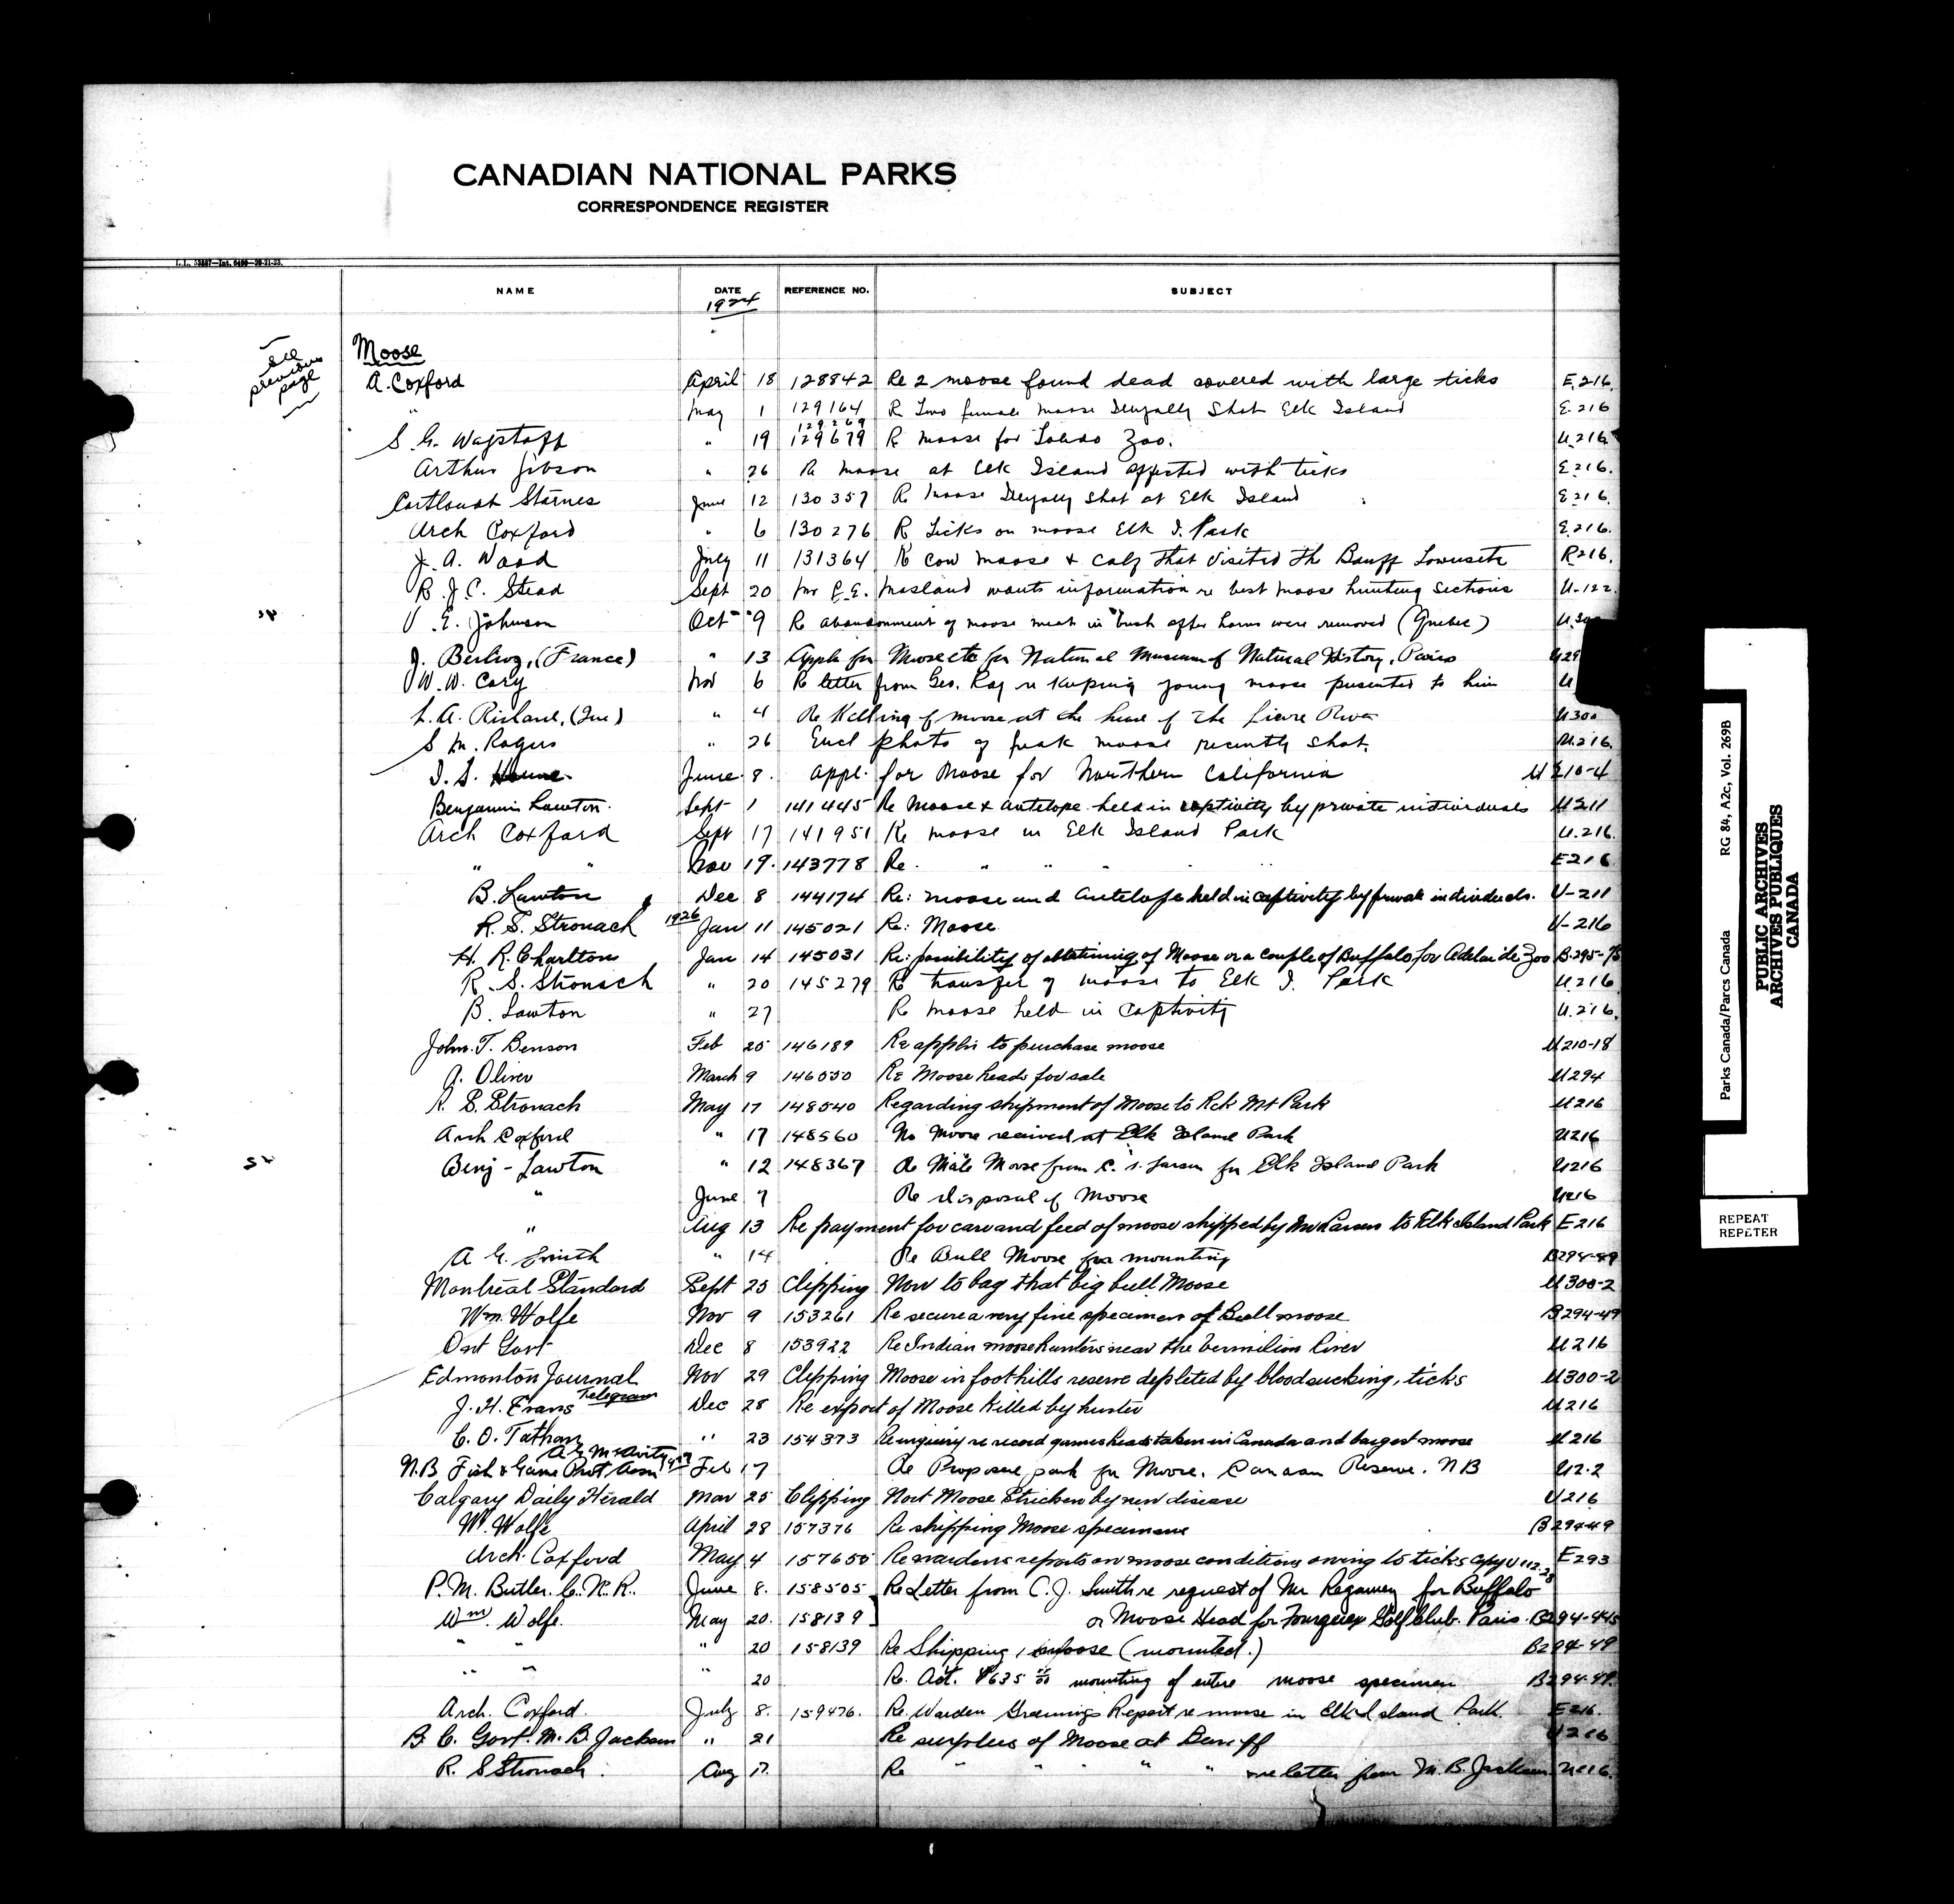 CANADIAN NATIONAL PARKS
CORRESPONDENCE REGISTER
NAME DATE REFERENCE NO. SUBJECT
1924
see previous page
Moose
A. Coxford April 18 128842 Re 2 moose found dead covered with large ticks E.216.
" May 1 129164 R Two female moose Illegally Shot Elk Island E.216
129269
S. G. Wagstaff " 19 129679 R moose for Toledo Zoo. U.216
Arthur Gibson " 26 Re moose at Elk Island affected with ticks E216.
Cortlandt Starnes June 12 130357 R moose Illegally Shot at Elk Island E216.
Arch Coxford " 6 130276 R Ticks on moose Elk I. Park E.216.
J. A. Wood July 11 131364 R cow moose & calf that visited the Banff Townsite R216.
R. J. C. Stead Sept 20 Mr E.E. Masland wants information re best moose hunting sections U-122.
V. E. Johnson Oct 9 R abandonment of moose meat in bush after horns were removed (Quebec)
J. Berlioz, (France) " 13 Appln for Moose etc for National Museum of Natural History, Paris
W. W. Cory Nov 6 Re letter from Geo. Ray re keeping young moose presented to him U
L. A. Richard, (Que) " 4 Re Killing of moose at the head of the Lievre River U300
S. M. Rogers " 26 Encl photo of freak moose recently shot. U.216.
I. S. Horne June 8. Appl. for Moose for Northern California U 210-4
Benjamin Lawton. Sept 1 141445 Re Moose & antelope held in captivity by private individuals U211
Arch Coxford Sept 17 141951 Re moose in Elk Island Park U.216.
" " Nov 19. 143778 Re. " " " " " E216
B. Lawton Dec 8 144174 Re: moose and antelope held in captivity by private individuals. U-211
R. S. Stronach 1926 Jan 11 145021 Re: Moose. U-216
H. R. Charlton Jan 14 145031 Re: possibility of obtaining of Moose or a couple of Buffalo for Adelaide Zoo B.295-
R. S. Stronach " 20 145279 R transfer of moose to Elk I. Park U.216
B. Lawton " 27 R moose held in captivity U.216.
John. T. Benson Feb 25 146189 Re appln to purchase moose U210-18
A. Oliver March 9 146050 Re Moose heads for sale U294
R. S. Stronach May 17 148540 Regarding shipment of Moose to Rck Mt Park U216
Arch Coxford " 17 148560 No Moose received at Elk Island Park U216
Benj - Lawton " 12 148367 Re Male Moose from C. S. Larsen for Elk Island Park U216
" June 7 Re disposal of Moose U216
" Aug 13 Re payment for care and feed of moose shipped by Mr Larsen to Elk Island Park E216
A G. Smith " 14 Re Bull Moose for mounting B294-49
Montreal Standard Sept 25 Clipping How to bag that big bull Moose U300-2
Wm. Wolfe Nov 9 153261 Re secure a very fine specimen of Bull moose B294-49
Ont Govt Dec 8 153922 Re Indian moose hunters near the Vermilion River U216
Edmonton Journal Nov 29 Clipping Moose in foothills reserve depleted by bloodsucking, ticks U300-2
J. H. Evans Telegram Dec 28 Re export of Moose Killed by hunter U216
C. O. Tathan " 23 154373 Re inquiry re record games heads taken in Canada and largest moose U216
A G McAvity
N.B Fish & Game Prot Assn 1927 Feb 17 Re Proposed park for Moose. Canaan Reserve. N B U2.2
Calgary Daily Herald Mar 25 Clipping Nort Moose Stricken by new disease U216
W. Wolfe April 28 157376 Re shipping Moose specimens B294-49
Arch. Coxford May 4 157655 Re wardens reports on moose conditions owing to ticks copy U112-28 E293
P. M. Butler. C. N. R. June 8. 158505 Re Letter from C. J. Smith re request of Mr Regamey for Buffalo
Wm. Wolfe. May 20. 158139 or Moose Head for Fourqueux Golf Club. Paris. B294-
" " " 20 158139 Re Shipping 1 moose (mounted.) B294-49
" " " 20 Re. Act. $635 mounting of entire moose specimen B294-49.
Arch. Coxford. July 8. 159476. Re. Warden Report re moose in Elk Island Park. E216.
B. C. Govt. M. B. Jackson " 21 Re surplus of Moose at Banff U216
R. S Stronach. Aug 17. Re " " " " " re letter from M. B. Jackson U216.
Parks Canada/Parcs Canada RG 84, A2c, Vol. 269B
PUBLIC ARCHIVES
ARCHIVES PUBLIQUES
CANADA
REPEAT
REPETER